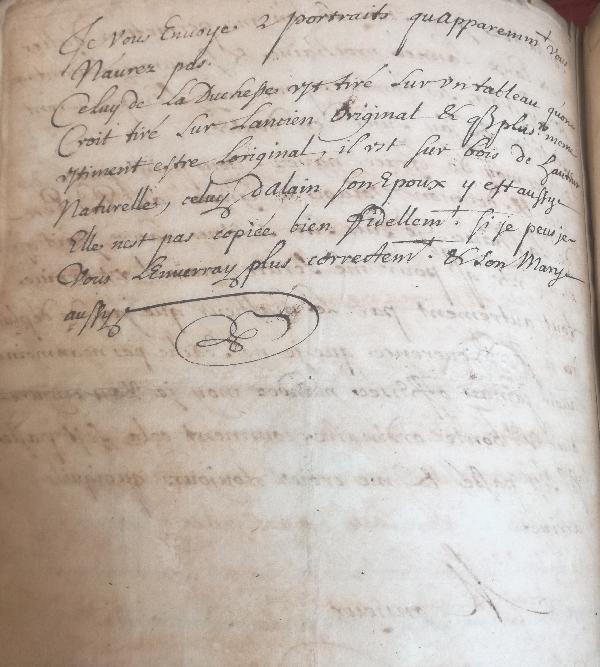 Je vous Envoye 2 portraits qu apparemmt vous
N'aurez pas.
Celuy de La Duchesse est tiré sur vn tableau quon
Croit tiré sur Lancien original & qs plus.rs mem
estiment estre Loriginal il est sur bois de hauteur
Naturelle, celuy dAlain son Epoux y est aussy
Elle nest pas copiée bien fidellemt. si je peus je
Vous L'Enverray plus correctemt. & son Mary
aussy